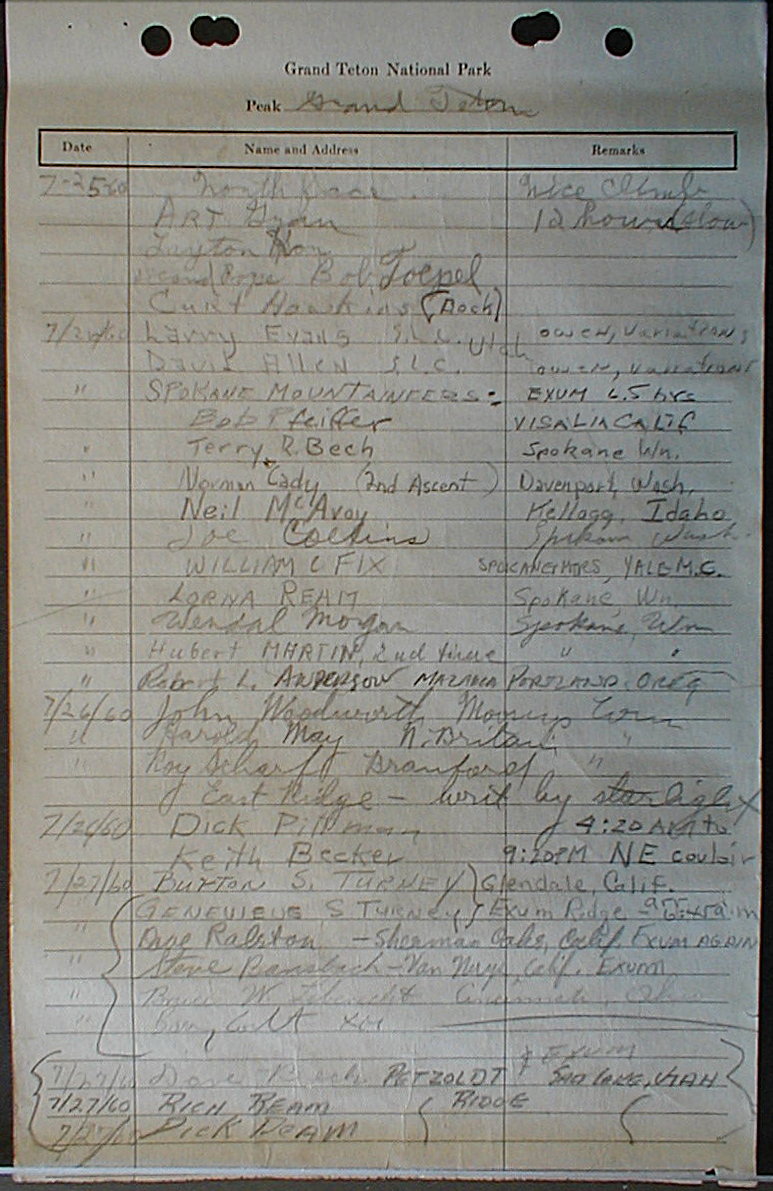 Grand Teton National Park
Peak Grand Teton
Date Name and Address Remarks
7-25-60 North Face. Nice Climb
ART 12 hours (slow)
Layton Kor
second Rope Bob Toepel
Curt Hawkins (Doch)
7/26/60 Larry Evans S.L.C. Utah owen, variations
David Allen S.L.C. owen, variations
" SPOKANE MOUNTAINEERS:- EXUM 6.5 hrs
Bob Pfeiffer VISALIA CALIF
" Terry R. Bech Spokane Wn.
" Norman Cady (2nd Ascent) Davenport, Wash.
" Neil McAvoy Kellogg, Idaho
" Joe Collins Spokane Wash.
" WILLIAM C FIX SPOKANE MTRS, YALE M.C.
" LORNA REAM Spokane, Wn.
" Wendal Morgan Spokane, Wn
" Hubert MARTIN, 2nd time " "
" Robert L. ANDERSON MAZAMA PORTLAND, OREG
7/26/60 John Woodworth Conn
" Harold May N. Britain "
" Roy Scharf Branford "
East Ridge - writ by starlight
7/26/60 Dick Pittman 4:20 AM to
Keith Becker 9:20PM NE couloir
7/27/60 BURTON S. TURNEY } Glendale, Calif.
" GENEVIEVE S TURNEY } Exum Ridge -
" Dave Ralston - Sherman Oaks, Calif. EXUM AGAIN
" Steve - Van Nuys, Calif. Exum
" Bruce W. Cincinnati, Ohio
"
7/27/60 Dave PETZOLDT & EXUM SALT LAKE, UTAH
7/27/60 RICH REAM RIDGE
7/27/60 DICK REAM